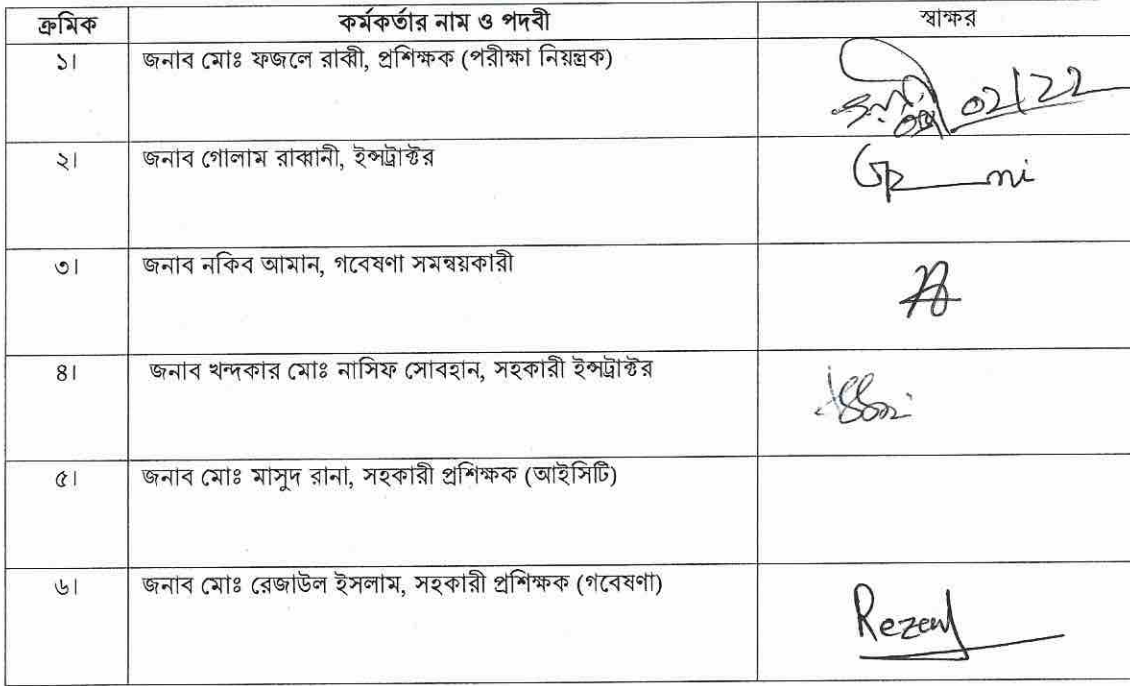 ক্রমিক কর্মকর্তার নাম ও পদবী স্বাক্ষর
১। জনাব মোঃ ফজলে রাব্বী, প্রশিক্ষক (পরীক্ষা নিয়ন্ত্রক)
02/22
২। জনাব গোলাম রাব্বানী, ইন্সট্রাক্টর
৩। জনাব নকিব আমান, গবেষণা সমন্বয়কারী
৪। জনাব খন্দকার মোঃ নাসিফ সোবহান, সহকারী ইন্সট্রাক্টর
৫। জনাব মোঃ মাসুদ রানা, সহকারী প্রশিক্ষক (আইসিটি)
৬। জনাব মোঃ রেজাউল ইসলাম, সহকারী প্রশিক্ষক (গবেষণা)
Rezaul